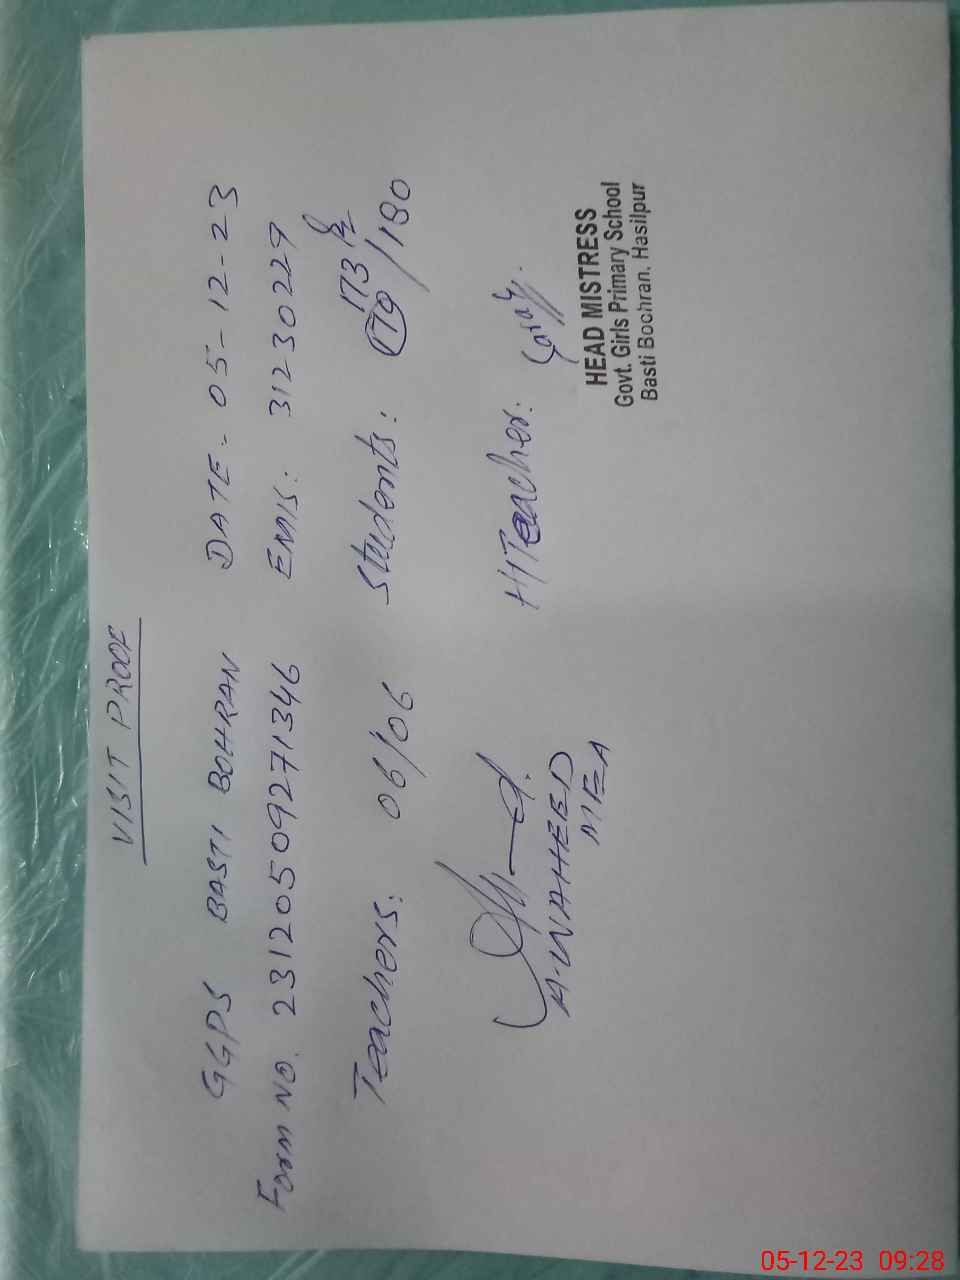 VISIT PROOF
GGPS BASTI BOHRAN DATE - 05-12-23
Form NO. 23120509271346 EMIS: 31230229
173
Teachers: 06/06 Students: 179/180
H/Teacher:
A.WAHEED
MEA
HEAD MISTRESS
Govt. Girls Primary School
Basti Bochran. Hasilpur
05-12-23 09:28